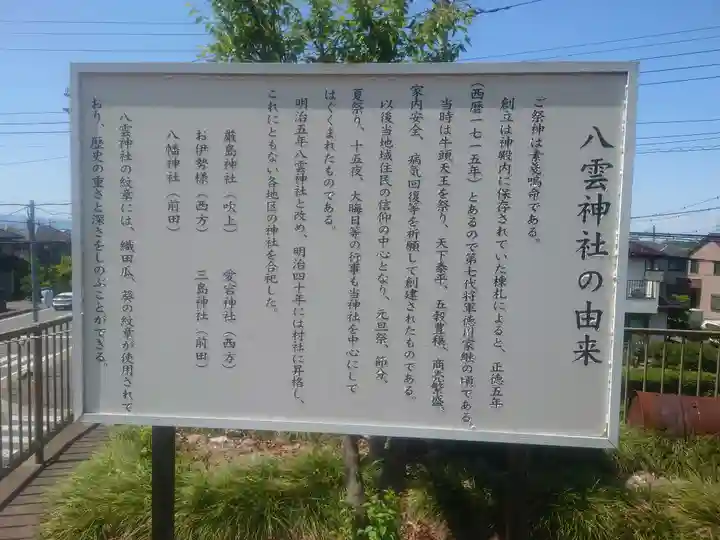 八雲神社の由来
ご祭神は素戔嗚命である。
創立は神殿内に保存されていた棟札によると、正徳五年
(西暦一七一五年)とあるので第七代将軍徳川家継の頃である。
当時は牛頭天王を祭り、天下泰平、五穀豊穣、商売繁盛、
家内安全、病気回復等を祈願して創建されたものである。
以後当地域住民の信仰の中心となり、元旦祭、節分、
夏祭り、十五夜、大晦日等の行事も当神社を中心にして
はぐくまれたものである。
明治五年八雲神社と改め、明治四十年には村社に昇格し、
これにともない各地区の神社を合祀した。
厳島神社(吹上) 愛宕神社(西方)
お伊勢様(西方) 三島神社(前田)
八幡神社(前田)
八雲神社の紋章には、織田瓜、葵の紋章が使用されて
おり、歴史の重さと深さをしのぶことができる。